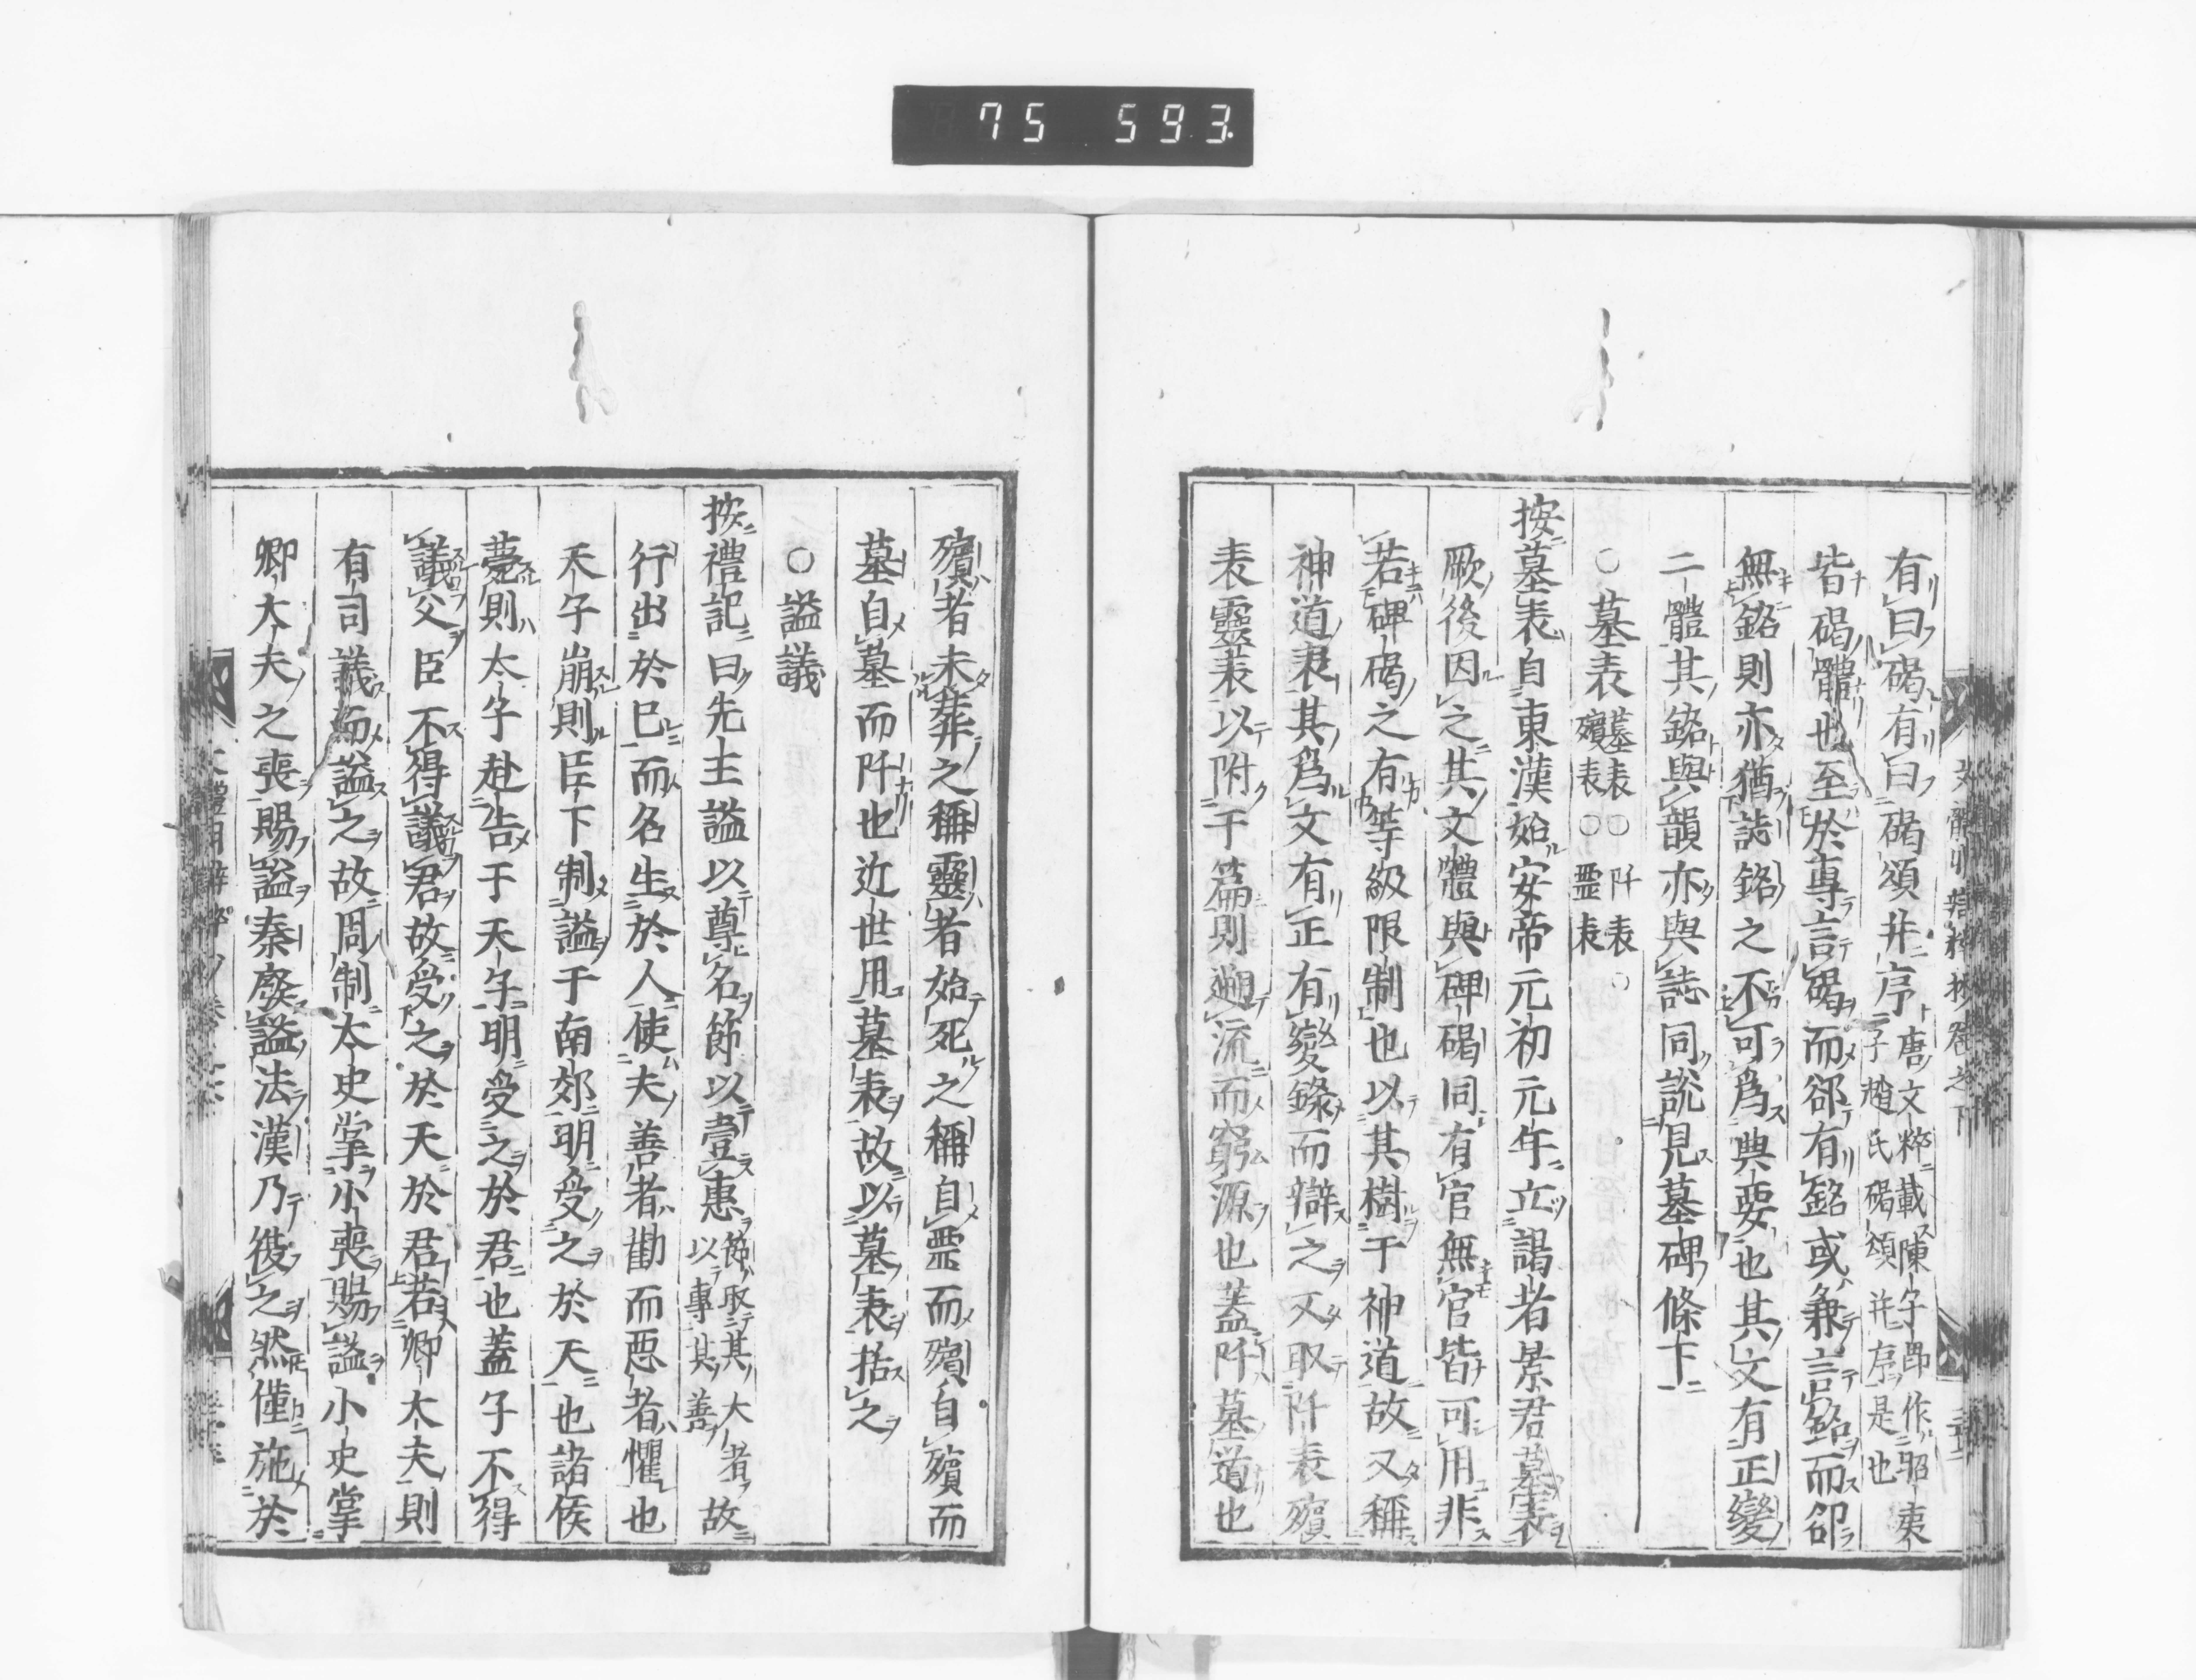 75 593
有曰碣有曰碣頌并序唐文粹載陳子昻作昭夷子趙氏碣頌并序是也
皆碣體也至於專言碣而卻有銘或兼言銘而卻
無銘則亦猶誌銘之不可爲典要也其文有正變
二體其銘與韻亦與誌同說見墓碑條下
○墓表墓表○阡表殯表○靈表
按墓表自東漢始安帝元初元年立謁者景君墓表
厥後因之其文體與碑碣同有官無官皆可用非
若碑碣之有等級限制也以其樹于神道故又稱
神道表其爲文有正有變錄而辯之又取阡表殯
表靈表以附于篇則遡流而窮源也蓋阡墓道也
殯者未葬之稱靈者始死之稱自靈而殯自殯而
墓自墓而阡也近世用墓表故以墓表括之
○謚議
按禮記曰先王謚以尊名節以壹惠節取其大者以專其善故
行出於已而名生於人使夫善者勸而惡者懼也
天子崩則臣下制謚于南郊明受之於天也諸侯
薨則太子赴告于天子明受之於君也蓋子不得
議父臣不得議君故受之於天於君若卿大夫則
有司議而謚之故周制太史掌小喪賜謚小史掌
卿大夫之喪賜謚秦廢謚法漢乃復之然僅施於